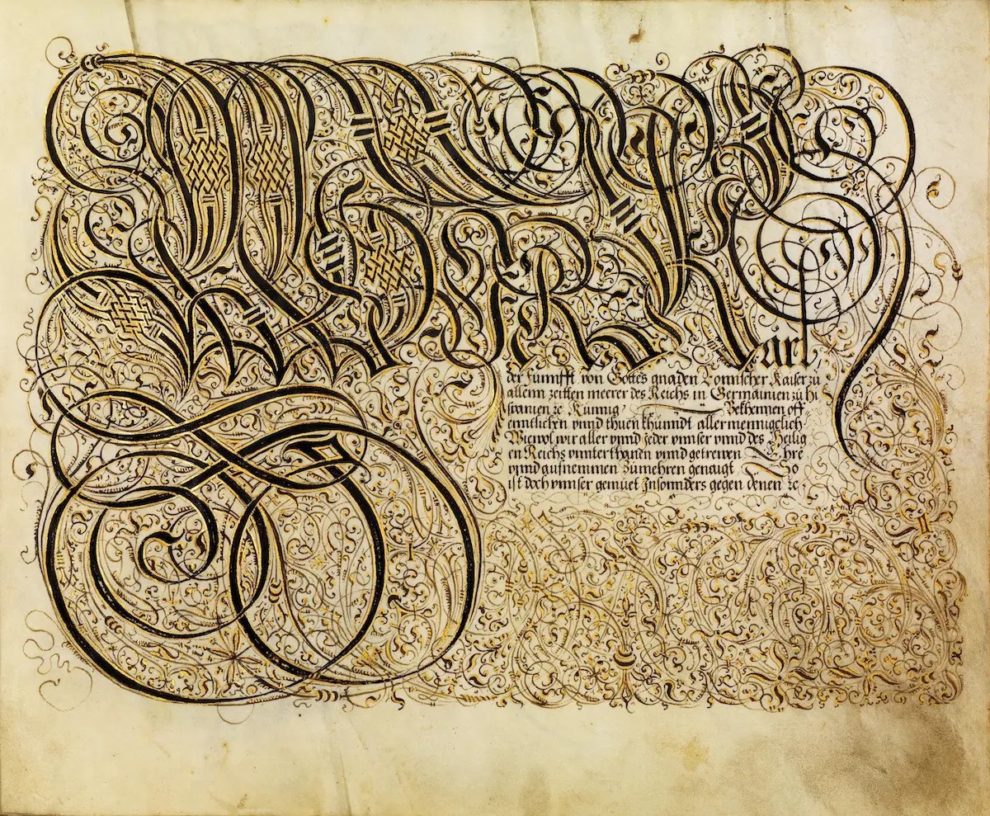 Wir Karl
der fünnfft von Gottes gnaden Römischer Kaiser zu
allenn zeitten meerer des Reichs in Germanien zu hi
spanien ꝛc Künnig Bekhennen off
enntlichen vnnd thuen khünndt aller mennigelich
Wiewol wir aller vnnd jeder vnnser vnnd des Heilig
en Reichs vnnterthanen vnnd getrewen Ehre
vnnd aufnemmen zumehren genaigt So
ist doch vnnser gemüet Insonnders gegen denen ꝛc